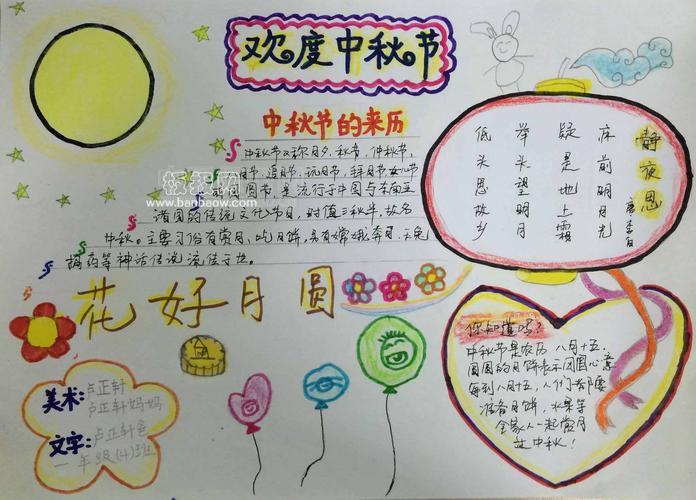 欢度中秋节
中秋节的来历
中秋节又称月夕、秋节、仲秋节、
月节、追月节、玩月节、拜月节、女儿节
圆节,是流行于中国与东南亚
诸国的传统文化节日,时值三秋半,故名
中秋。主要习俗有赏月、吃月饼,另有嫦娥奔月,玉兔
捣药等神话传说流传于世。
板报网
www.banbaow.com
静夜思
唐李白
床前明月光
疑是地上霜
举头望明月
低头思故乡
花好月圆
你知道吗?
中秋节是农历八月十五.
圆圆的月饼表示团圆心意
每到八月十五,人们都要
准备月饼,水果等
全家人一起赏月
过中秋!
美术:卢正轩
卢正轩妈妈
文字:卢正轩爸
一年级(4)班